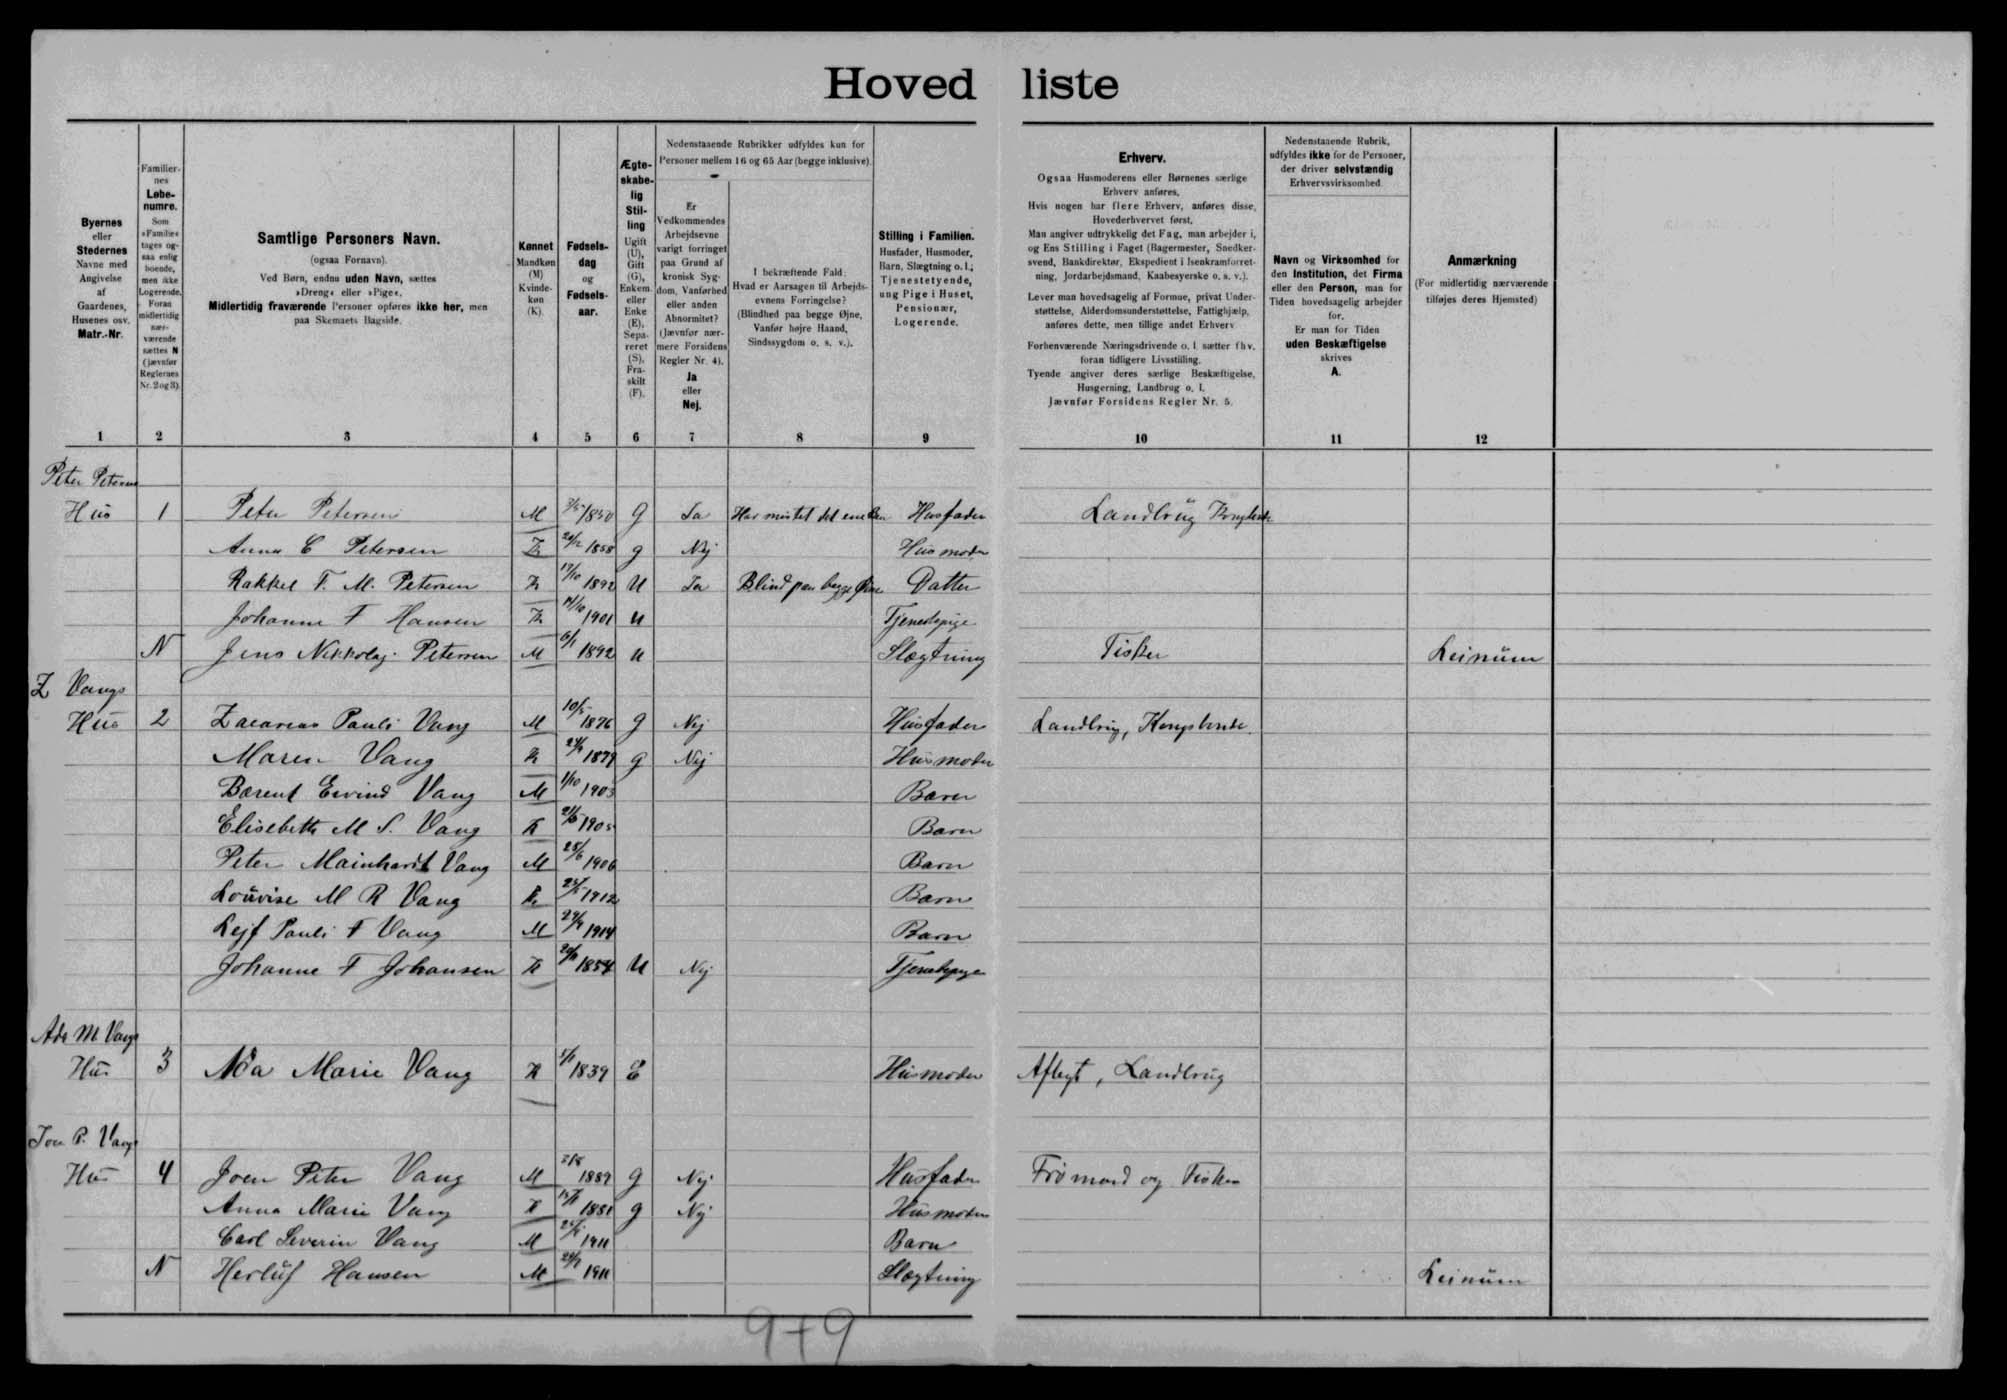 Hoved liste
Byernes
eller
Stedernes
Navne med
Angivelse
af
Gaardenes,
Husenes osv.
Matr.-Nr.
Familier-
nes
Løbe-
numre.
Som
»Familie«
tages og-
saa enlig
boende,
men ikke
Logerende.
Foran
midlertidig
nær-
værende
sættes N
(jævnfør
Reglernes
Nr. 2 og 3).
Samtlige Personers Navn.
(ogsaa Fornavn).
Ved Børn, endnu uden Navn, sættes
»Dreng« eller »Pige«.
Midlertidig fraværende Personer opføres ikke her, men
paa Skemaets Bagside.
Kønnet
Mandkøn
(M)
Kvinde-
køn
(K).
Fødsels-
dag
og
Fødsels-
aar.
Ægte-
skabe-
lig
Stil-
ling
Ugift
(U),
Gift
(G),
Enkem.
eller
Enke
(E),
Sepa-
reret
(S),
Fra-
skilt
(F).
Nedenstaaende Rubrikker udfyldes kun for
Personer mellem 16 og 65 Aar (begge inklusive).
Er
Vedkommendes
Arbejdsevne
varigt forringet
paa Grund af
kronisk Syg-
dom, Vanførhed
eller anden
Abnormitet?
(Jævnfør nær-
mere Forsidens
Regler Nr. 4).
Ja
eller
Nej.
I bekræftende Fald:
Hvad er Aarsagen til Arbejds-
evnens Forringelse?
(Blindhed paa begge Øjne,
Vanfør højre Haand,
Sindssygdom o. s. v.).
Stilling i Familien.
Husfader, Husmoder,
Barn, Slægtning o. l.;
Tjenestetyende,
ung Pige i Huset,
Pensionær,
Logerende.
Erhverv.
Ogsaa Husmoderens eller Børnenes særlige
Erhverv anføres.
Hvis nogen har flere Erhverv, anføres disse,
Hovederhvervet først.
Man angiver udtrykkelig det Fag, man arbejder i,
og Ens Stilling i Faget (Bagermester, Snedker-
svend, Bankdirektør, Ekspedient i Isenkramforret-
ning, Jordarbejdsmand, Kaabesyerske o. s. v.).
Lever man hovedsagelig af Formue, privat Under-
støttelse, Alderdomsunderstøttelse, Fattighjælp,
anføres dette, men tillige andet Erhverv
Forhenværende Næringsdrivende o. l. sætter fhv.
foran tidligere Livsstilling.
Tyende angiver deres særlige Beskæftigelse,
Husgerning, Landbrug o. l.
Jævnfør Forsidens Regler Nr. 5.
Nedenstaaende Rubrik,
udfyldes ikke for de Personer,
der driver selvstændig
Erhvervsvirksomhed.
Navn og Virksomhed for
den Institution, det Firma
eller den Person, man for
Tiden hovedsagelig arbejder
for.
Er man for Tiden
uden Beskæftigelse
skrives
A.
Anmærkning
(For midlertidig nærværende
tilføjes deres Hjemsted)
1 2 3 4 5 6 7 8 9 10 11 12
Peter Petersens
Hus 1 Peter Petersen M 1850 G Ja Har mistet det ene Husfader Landbrug Kongsbonde
Anna C Petersen K 1858 g Nej Husmoder
Rakkel F. M. Petersen K 17/10 1892 U Ja Blind paa begge Øine Datter
Johanne F Hansen K 1901 U Tjenestepige
N Jens Nikkolaj Petersen M 6/1 1892 U Slægtning Fisker Leinum
Z Vangs
Hus 2 Zacarias Pauli Vang M 10/5 1876 g Nej Husfader Landbrug, Kongsbonde.
Maren Vang K 1879 g Nej Husmoder
Barent Eivind Vang M 1/10 1903 Barn
Elisebeth M S. Vang K 1905 Barn
Peter Mainhardt Vang M 25/6 1906 Barn
Louvise M R Vang K 1912 Barn
Lejf Pauli F Vang M 1914 Barn
Johanne F Johansen K 1854 U Nej Tjenestepige
Ada M Vangs
Hus 3 Ada Marie Vang K 1839 E Husmoder Aflegt, Landbrug
Joen P. Vangs
Hus 4 Joen Peter Vang M 1889 g Nej Husfader Trömand og Fisker
Anna Marie Vang K 1881 g Nej Husmoder
Carl Severin Vang M 1911 Barn
N Herluf Hansen M 1911 Slægtning Leinum
9+9